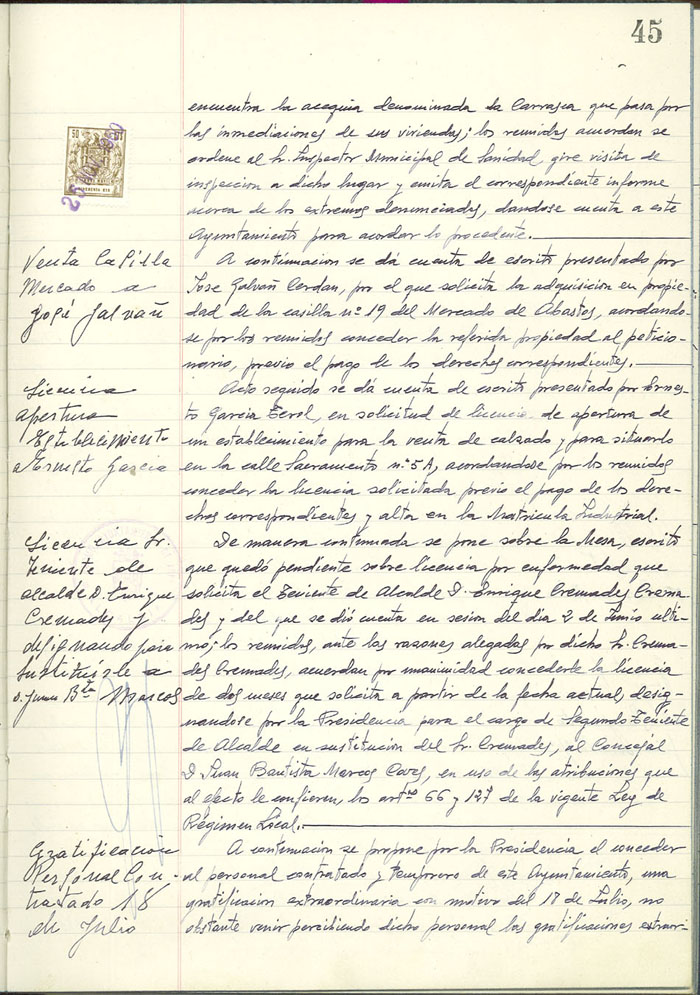 45
encuentra la acequia denominada la Carrasca que pasa por
las inmediaciones de sus viviendas; los reunidos acuerdan se
ordene al Sr. Inspector Municipal de Sanidad, gire visita de
inspeccion a dicho lugar y emita el correspondiente informe
acerca de los extremos denunciados, dandose cuenta a este
Ayuntamiento para acordar lo procedente.
Venta Casilla
Mercado a
José Galvañ
A continuacion se dá cuenta de escrito presentado por
Jose Galvañ Cerdan, por el que solicita la adquisicion en propie-
dad de la casilla nº 19 del Mercado de Abastos, acordando-
se por los reunidos conceder la referida propiedad al peticio-
nario, previo el pago de los derechos correspondientes.
Licencia
apertura
Establecimiento
a Ernesto Garcia
Acto seguido se dá cuenta de escrito presentado por Ernes-
to Garcia Terol, en solicitud de licencia de apertura de
un establecimiento para la venta de calzado y para situarlo
en la calle Sacramento nº 5A, acordandose por los reunidos
conceder la licencia solicitada previo el pago de los dere-
chos correspondientes y alta en la Matricula Industrial.
Licencia Sr.
Teniente de
alcalde D. Enrique
Cremades y
designando para
sustituirle a
D. Juan Bta Marcos
De manera continuada se pone sobre la Mesa, escrito
que quedó pendiente sobre licencia por enfermedad que
solicita el Teniente de Alcalde D. Enrique Cremades Crema-
des y del que se dió cuenta en sesion del dia 2 de Junio ulti-
mo; los reunidos, ante las razones alegadas por dicho Sr. Crema-
des Cremades, acuerdan por unanimidad concederle la licencia
de dos meses que solicita a partir de la fecha actual, desig-
nandose por la Presidencia para el cargo de Segundo Teniente
de Alcalde en sustitucion del Sr. Cremades, al Concejal
D. Juan Bautista Marcos Caves, en uso de las atribuciones que
al efecto le confieren, los artºs 66 y 127 de la vigente Ley de
Régimen Local.
Gratificación
Personal Con-
tratado 18
de Julio
A continuacion se propone por la Presidencia el conceder
al personal contratado y temporero de este Ayuntamiento, una
gratificacion extraordinaria con motivo del 18 de Julio, no
obstante venir percibiendo dicho personal las gratificaciones extraor-